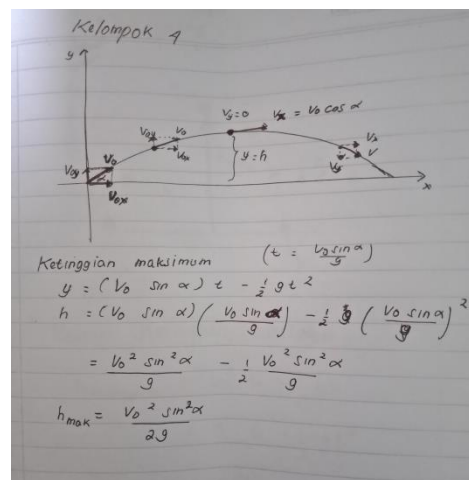 Kelompok 4
y
Vy=0 Vx = Vo cos α
Voy Vo
Vox
y=h
Vx
V
Vy
Vo
Voy
α
Vox
x
Ketinggian maksimum (t = Vo sin α / g)
y = (Vo sin α) t - ½ gt²
h = (Vo sin α) (Vo sin α / g) - ½ g (Vo sin α / g)²
= Vo² sin² α / g - ½ Vo² sin² α / g
h mak = Vo² sin² α / 2g